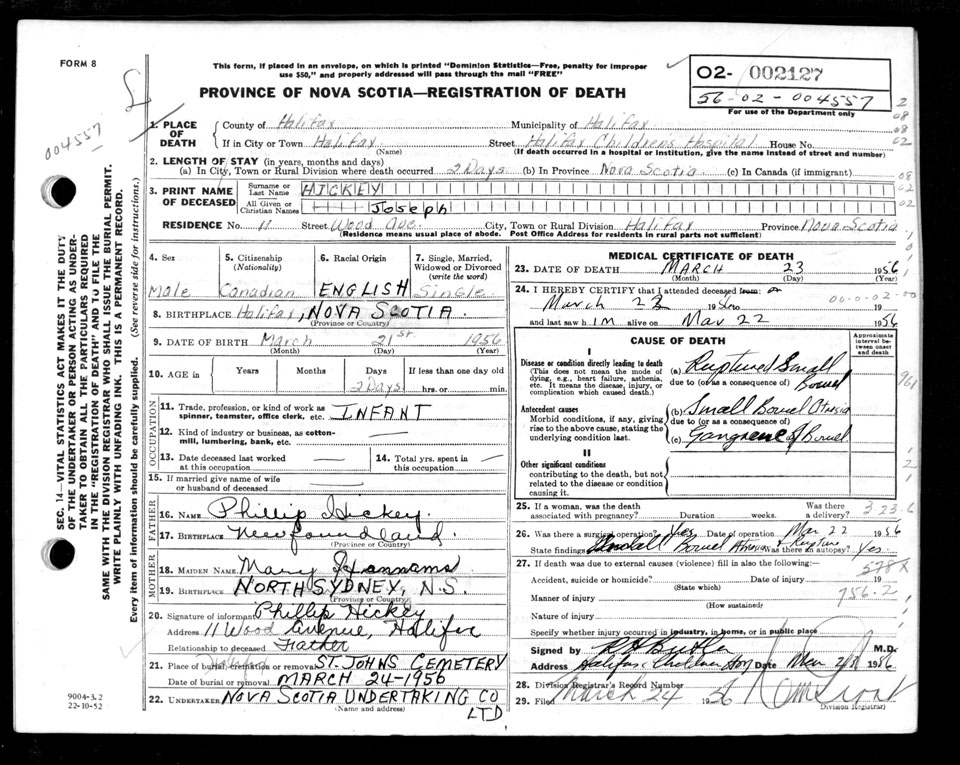 FORM 8
This form, if placed in an envelope, on which is printed "Dominion Statistics—Free, penalty for improper
use $50," and properly addressed will pass through the mail "FREE"
PROVINCE OF NOVA SCOTIA—REGISTRATION OF DEATH
02- 002127
56-02-004557
For use of the Department only
004557
SEC. 14—VITAL STATISTICS ACT MAKES IT THE DUTY
OF THE UNDERTAKER OR PERSON ACTING AS UNDER-
TAKER TO OBTAIN ALL THE PARTICULARS REQUIRED
IN THE "REGISTRATION OF DEATH" AND TO FILE THE
SAME WITH THE DIVISION REGISTRAR WHO SHALL ISSUE THE BURIAL PERMIT.
WRITE PLAINLY WITH UNFADING INK. THIS IS A PERMANENT RECORD.
Every item of information should be carefully supplied. (See reverse side for instructions.)
1. PLACE OF DEATH
County of Halifax Municipality of Halifax
If in City or Town Halifax Street Halifax Children's Hospital House No.
(Name) (If death occurred in a hospital or institution, give the name instead of street and number)
2. LENGTH OF STAY (in years, months and days)
(a) In City, Town or Rural Division where death occurred 2 Days (b) In Province Nova Scotia (c) In Canada (if immigrant)
3. PRINT NAME OF DECEASED
Surname or Last Name HICKEY
All Given or Christian Names Joseph
RESIDENCE No. 11 Street Wood Ave. City, Town or Rural Division Halifax Province Nova Scotia
(Residence means usual place of abode. Post Office Address for residents in rural parts not sufficient)
4. Sex
Male
5. Citizenship (Nationality)
Canadian
6. Racial Origin
ENGLISH
7. Single, Married, Widowed or Divorced (write the word)
Single
8. BIRTHPLACE Halifax, NOVA SCOTIA.
(Province or Country)
9. DATE OF BIRTH March 21st 1956
(Month) (Day) (Year)
10. AGE in Years Months Days If less than one day old
2 Days hrs. or min.
OCCUPATION
11. Trade, profession, or kind of work as
spinner, teamster, office clerk, etc. INFANT
12. Kind of industry or business, as cotton-
mill, lumbering, bank, etc. —
13. Date deceased last worked
at this occupation —
14. Total yrs. spent in
this occupation —
15. If married give name of wife
or husband of deceased —
FATHER
16. Name Phillip Hickey
17. Birthplace Newfoundland.
(Province or Country)
MOTHER
18. Maiden Name Mary Hannams
19. Birthplace NORTH SYDNEY, N.S.
(Province or Country)
20. Signature of informant Phillip Hickey
Address 11 Wood Avenue, Halifax
Relationship to deceased Father
21. Place of burial, cremation or removal ST. JOHNS CEMETERY
Date of burial or removal MARCH 24-1956
22. Undertaker NOVA SCOTIA UNDERTAKING CO
LTD
(Name and address)
9004-3.2
22-10-52
MEDICAL CERTIFICATE OF DEATH
23. DATE OF DEATH MARCH 23 1956
(Month) (Day)
24. I HEREBY CERTIFY that I attended deceased from:
March 22 1956 to 19
and last saw him alive on Mar 22 1956
CAUSE OF DEATH
Approximate interval between onset and death
I
Disease or condition directly leading to death
(This does not mean the mode of
dying, e.g., heart failure, asthenia,
etc. It means the disease, injury, or
complication which caused death.)
(a) Ruptured Small
due to (or as a consequence of) Bowel
Antecedent causes
Morbid conditions, if any, giving
rise to the above cause, stating the
underlying condition last.
(b) Small Bowel Atresia
due to (or as a consequence of)
(c) Gangrene of Bowel
II
Other significant conditions
contributing to the death, but not
related to the disease or condition
causing it.
961
25. If a woman, was the death
associated with pregnancy? Duration weeks. Was there a delivery?
323-6
26. Was there a surgical operation? Yes Date of operation Mar 22 1956
State findings Small Bowel Atresia Rupture Was there an autopsy? Yes
27. If death was due to external causes (violence) fill in also the following:
578X
Accident, suicide or homicide? Date of injury 19
(State which)
756.2
Manner of injury
(How sustained)
Nature of injury
Specify whether injury occurred in industry, in home, or in public place
Signed by M.D.
Address Halifax Children Hosp Date Mar 1956
28. Division Registrar's Record Number
29. Filed March 24 1956
Division Registrar)